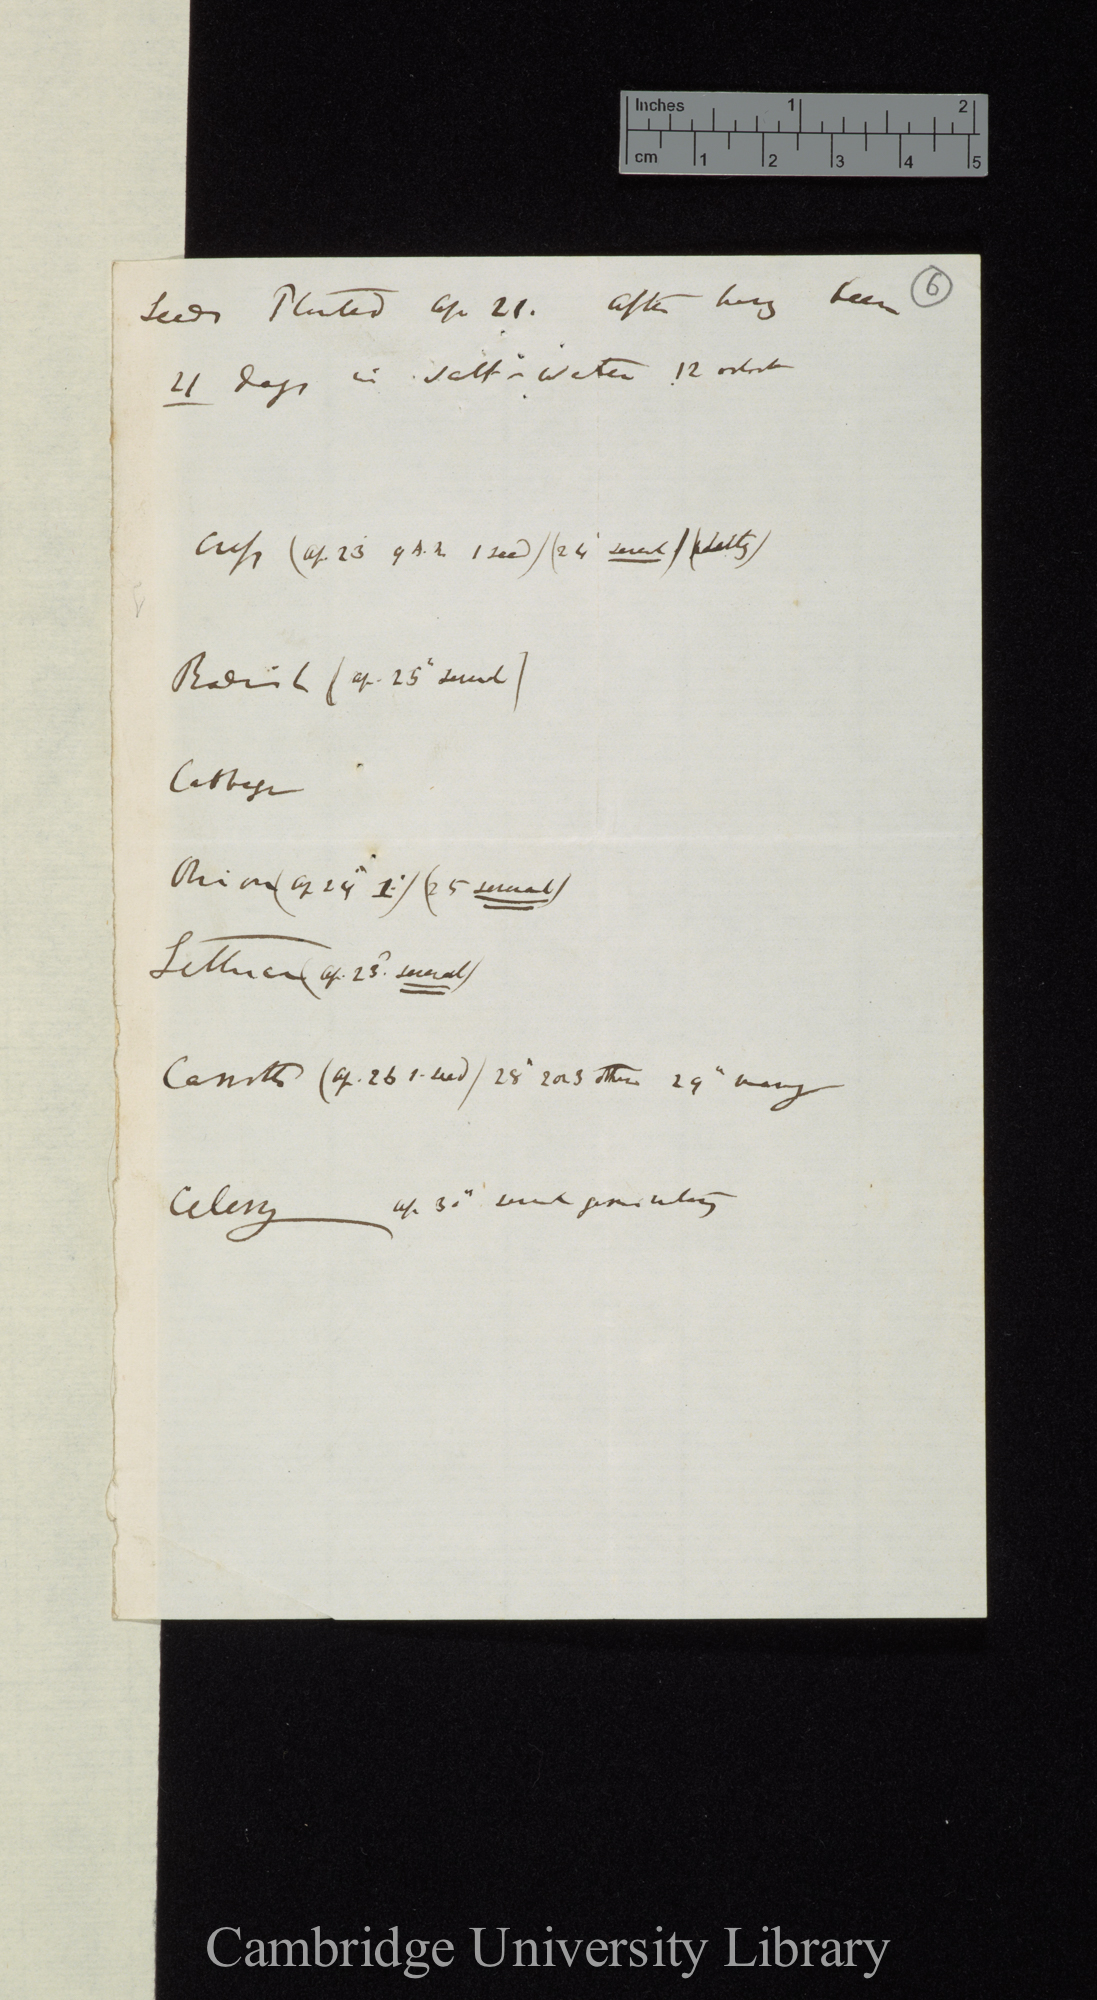 Inches 1 2
cm 1 2 3 4 5
6
Seeds Planted Ap 21. after having been
21 days in salt-water 12 oclock
Cress (Ap. 23 9 A.M 1 seed) (24th several)
Radish (Ap. 25th several)
Cabbage
Onion (Ap 24th 1) (25 several)
Lettuce (Ap. 23. several)
Carrots (Ap. 26 1. seed) 28th 2 or 3 others 29th many
Celery Ap. 30th several germinating
Cambridge University Library